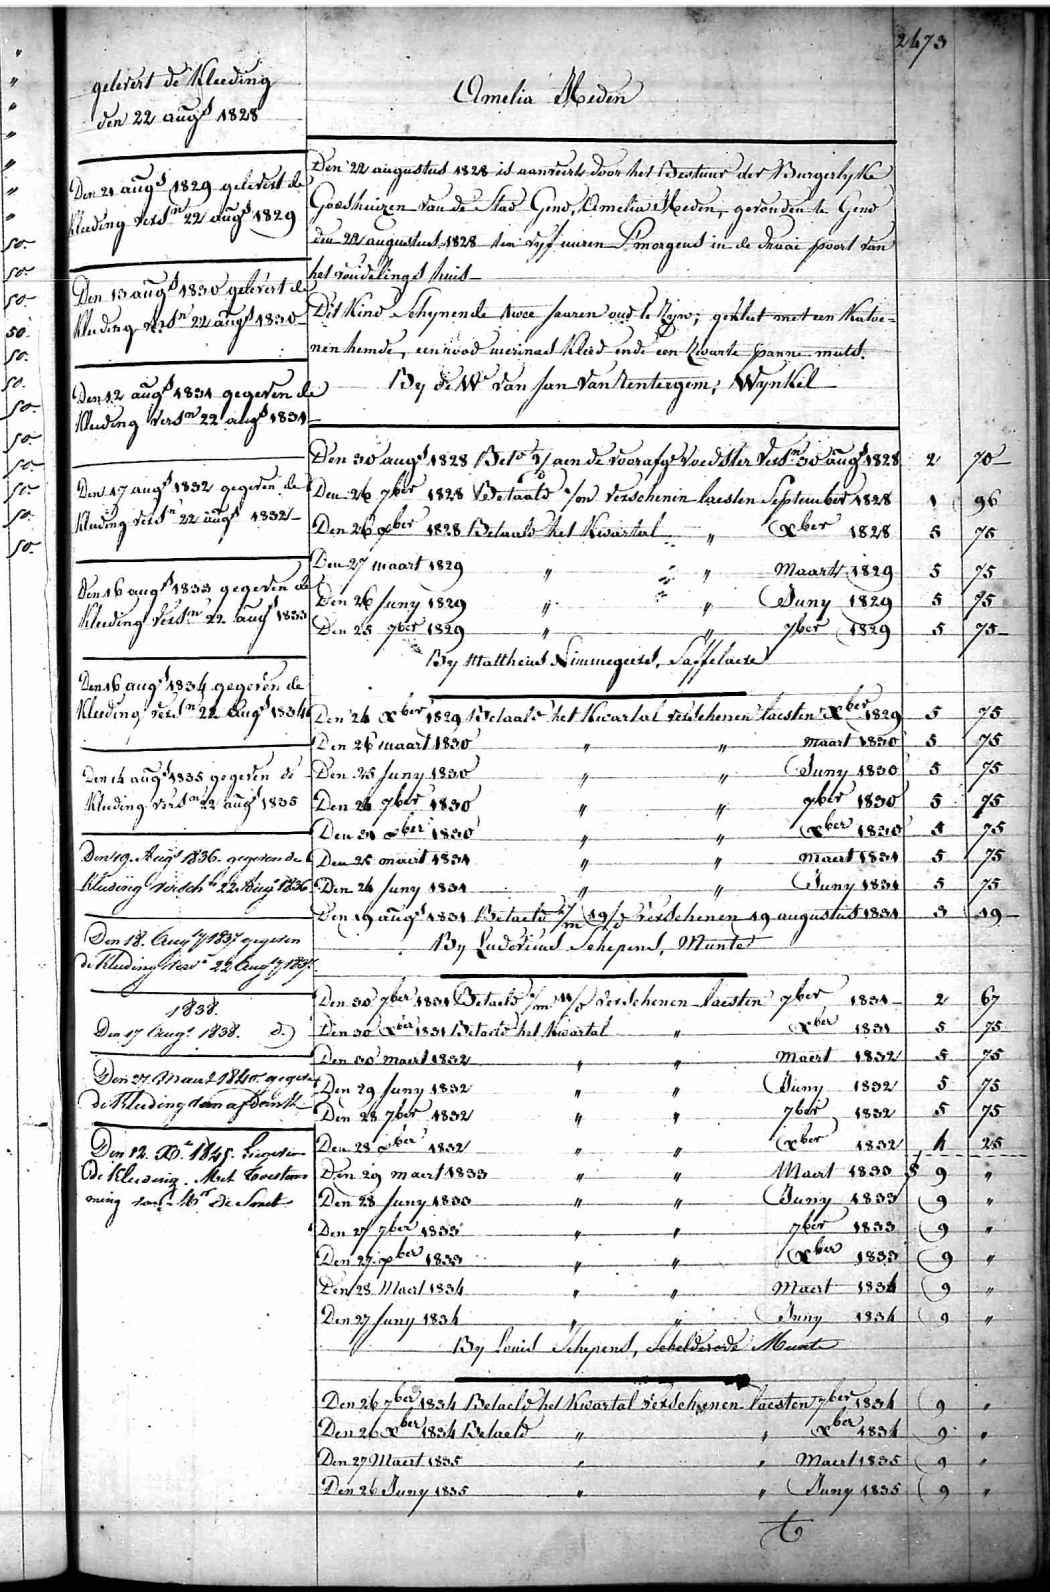 2473
gelevert de Kleeding
den 22 augs 1828
Den 21 augs 1829 gelevert de
kleeding versn 22 augs 1829
Den 13 augs 1830 gelevert de
kleeding versn 22 augs 1830
Den 12 augs 1831 gegeven de
kleeding versn 22 augs 1831
Den 17 augs 1832 gegeven de
kleeding versn 22 augs 1832
Den 16 augs 1833 gegeven de
kleeding versn 22 augs 1833
Den 16 augs 1834 gegeven de
kleeding versn 22 augs 1834
Den 14 augs 1835 gegeven de
kleeding versn 22 augs 1835
Den 19 Augs 1836 gegeven de
kleeding versch 22 Augs 1836
Den 18 Aug 1837 gegeven
de kleeding vers 22 Aug 1837
1838.
Den 17 Augs 1838. d.)
Den 27 Maert 1840 gegeven
de kleeding van afdank
Den 12 1845
de kleeding. Met toestem
ming van Mr de Smet
Amelia Meden
Den 22 augustus 1828 is aanveert door het Bestuur der Burgerlyke
Godshuizen van de Stad Gend, Amelia Meden, gevonden te Gend
den 22 augustus 1828 ten vyf uuren S'morgens in de draai poort van
het vondelings huis
Dit Kind schynende twee jaaren oud te zyn; gekleet met een Katoe=
nen hemde, een rood merinos kleed ende een zwarte panne muts.
By de We van Jan Van Rentergem, Wynkel
Den 30 augs 1828 Bet aen de voorafge voedster versn 30 augs 1828 2 70
Den 26 7ber 1828 Betaald verschenen laesten September 1828 1 96
Den 26 xber 1828 Betaald het Kwartal " Xber 1828 5 75
Den 27 maart 1829 " " Maart 1829 5 75
Den 26 Juny 1829 " " Juny 1829 5 75
Den 25 7ber 1829 " " 7ber 1829 5 75
By Mattheus Simmegeers, Saffelaere
Den 24 Xber 1829 Betaald het Kwartal verschenen laesten Xber 1829 5 75
Den 26 maart 1830 " " maart 1830 5 75
Den 25 Juny 1830 " " Juny 1830 5 75
Den 24 7ber 1830 " " 7ber 1830 5 75
Den 31 xber 1830 " " xber 1830 5 75
Den 25 maert 1831 " " Maert 1831 5 75
Den 24 Juny 1831 " " Juny 1831 5 75
Den 19 augs 1831 Betaeld verschenen 19 augustus 1831 3 19
By Ludovicus Schepens, Munte
Den 30 7ber 1831 Betaeld verschenen laesten 7ber 1831 2 67
Den 30 Xber 1831 Betaeld het Kwartal " Xber 1831 5 75
Den 30 maert 1832 " " Maert 1832 5 75
Den 29 Juny 1832 " " Juny 1832 5 75
Den 28 7ber 1832 " " 7ber 1832 5 75
Den 28 xber 1832 " " Xber 1832 4 25
Den 29 maert 1833 " " Maert 1833 9 "
Den 28 Juny 1833 " " Juny 1833 9 "
Den 27 7ber 1833 " " 7ber 1833 9 "
Den 27 xber 1833 " " Xber 1833 9 "
Den 28 Maert 1834 " " Maert 1834 9 "
Den 27 Juny 1834 " " Juny 1834 9 "
By Louis Schepens, Schelderode Munte
Den 26 7ber 1834 Betaeld het Kwartal verschenen laesten 7ber 1834 9 "
Den 26 Xber 1834 Betaeld " " Xber 1834 9 "
Den 27 Maert 1835 " " Maert 1835 9 "
Den 26 Juny 1835 " " Juny 1835 9 "